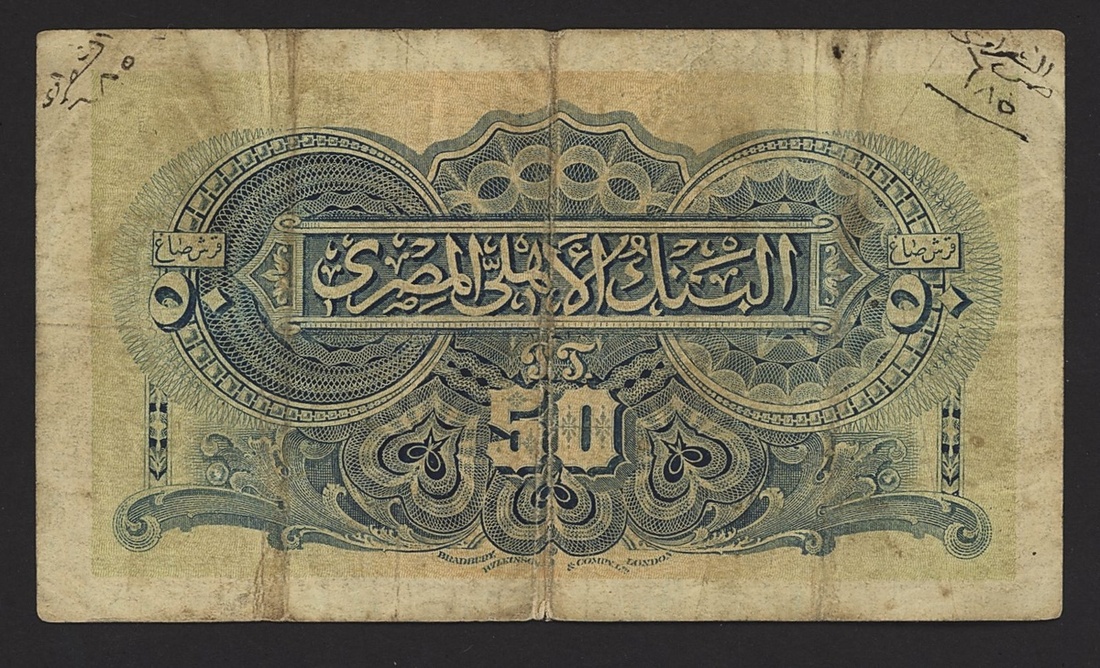 قرش صاغ
٥٠
البنك الأهلى المصرى
قرش صاغ
٥٠
P.T.
50
BRADBURY, WILKINSON & COMPY. LD. LONDON